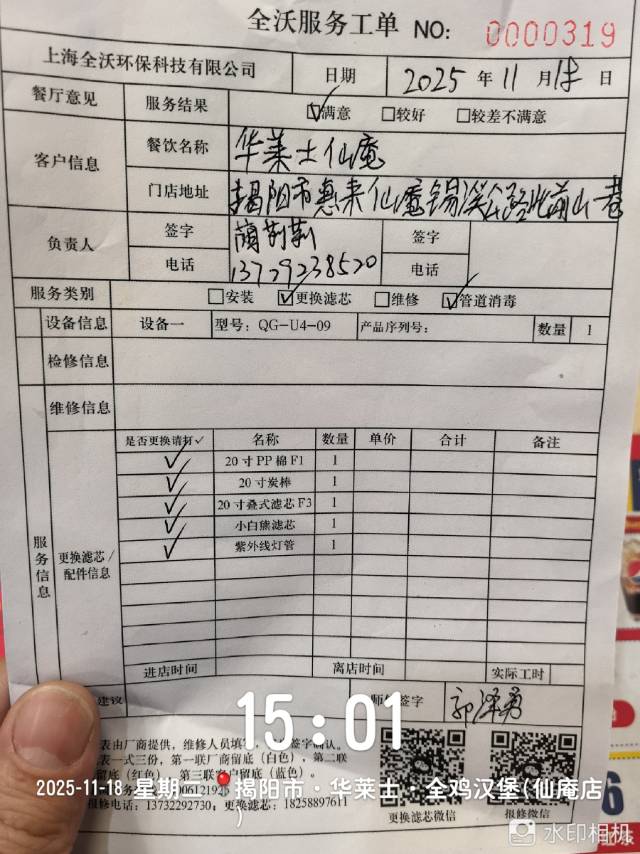 全沃服务工单 NO: 0000319
上海全沃环保科技有限公司 日期 2025 年 11 月 18 日
餐厅意见 服务结果 ☑满意 ☐较好 ☐较差不满意
客户信息 餐饮名称 华莱士仙庵
门店地址 揭阳市惠来仙庵锡溪公路北前山巷
负责人 签字 签字
电话 13729238520 电话
服务类别 ☐安装 ☑更换滤芯 ☐维修 ☑管道消毒
设备信息 设备一 型号: QG-U4-09 产品序列号: 数量 1
检修信息
维修信息
服务信息
更换滤芯/配件信息
是否更换请打✓ 名称 数量 单价 合计 备注
✓ 20寸PP棉F1 1
✓ 20寸炭棒 1
✓ 20寸叠式滤芯F3 1
✓ 小白熊滤芯 1
✓ 紫外线灯管 1
进店时间 离店时间 实际工时
建议 签字 郭泽勇
15:01
表由厂商提供, 维修人员填写, 签字确认。
表一式三份, 第一联厂商留底(白色)、第二联
留底(红色)、第三联 户留底(蓝色)。
2025-11-18 星期一 揭阳市·华莱士·全鸡汉堡(仙庵店
)
报修电话: 13732292730; 更换滤芯: 18258897611
更换滤芯微信 报修微信
水印相机